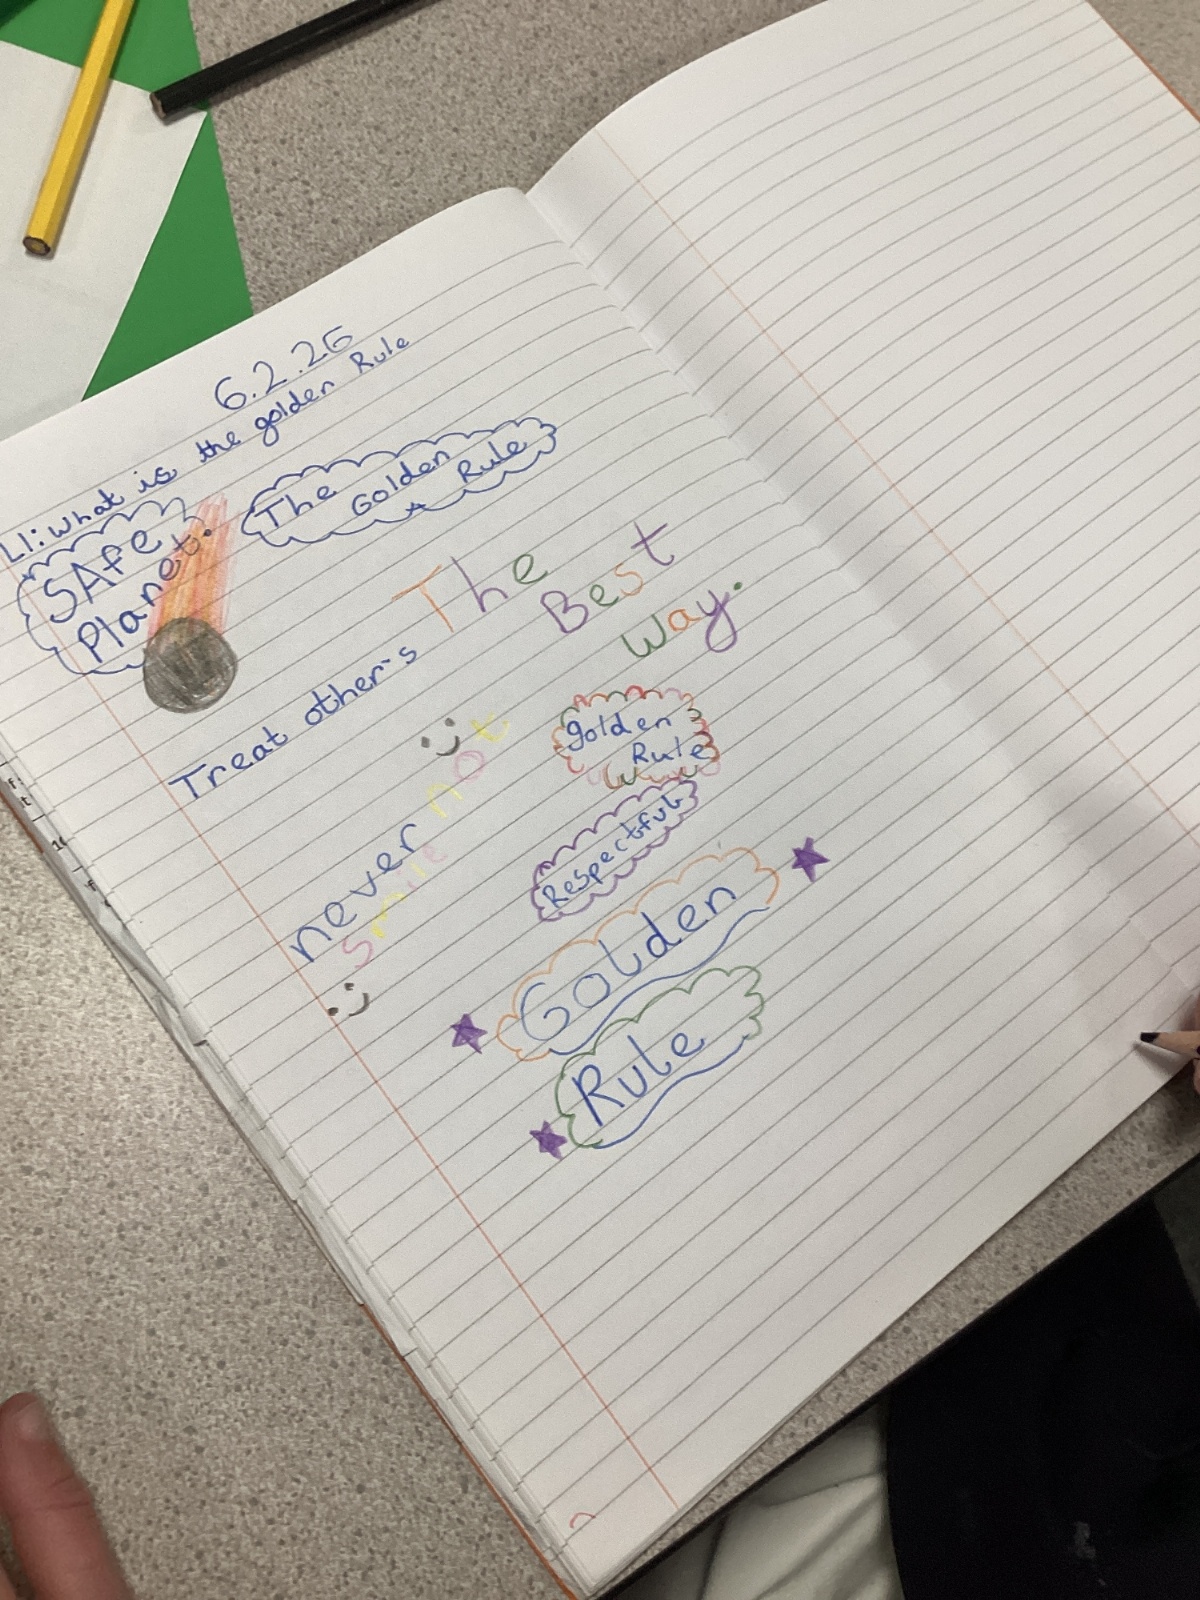 6.2.26
LI: What is the golden Rule
SAfe
Planet.
The
Golden
Rule
Treat other's The
Best
way.
never not
smile
golden
Rule
Respectful
Golden
Rule